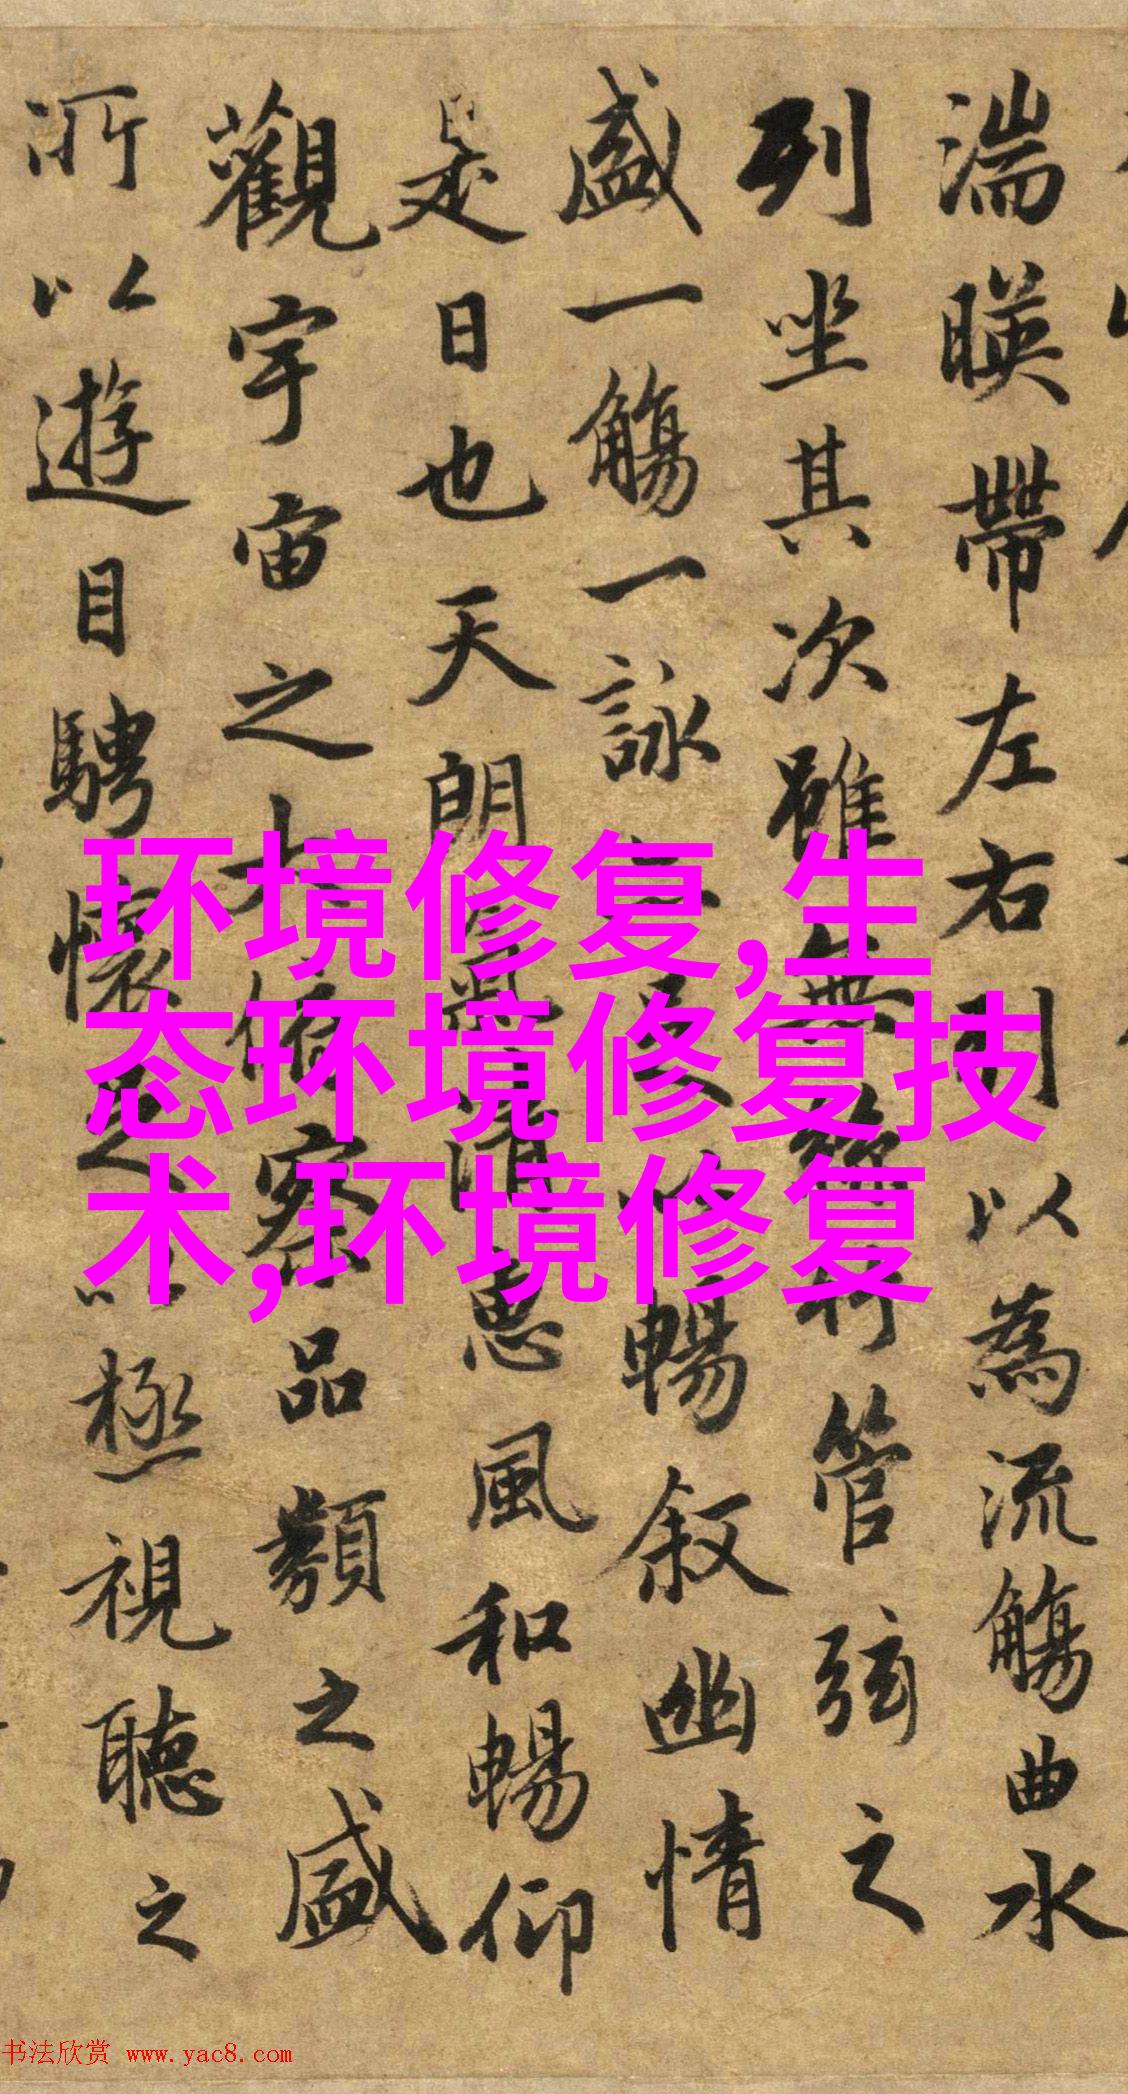 湍暎帶左右引以為流觴曲水
列坐其次雖無絲竹管弦之
盛一觴一詠亦足以暢叙幽情
是日也天朗氣清惠風和暢仰
觀宇宙之大俯察品類之盛
所以遊目騁懷足以極視聽之
环境修复,生
态环境修复技
术,环境修复
书法欣赏 www.yac8.com